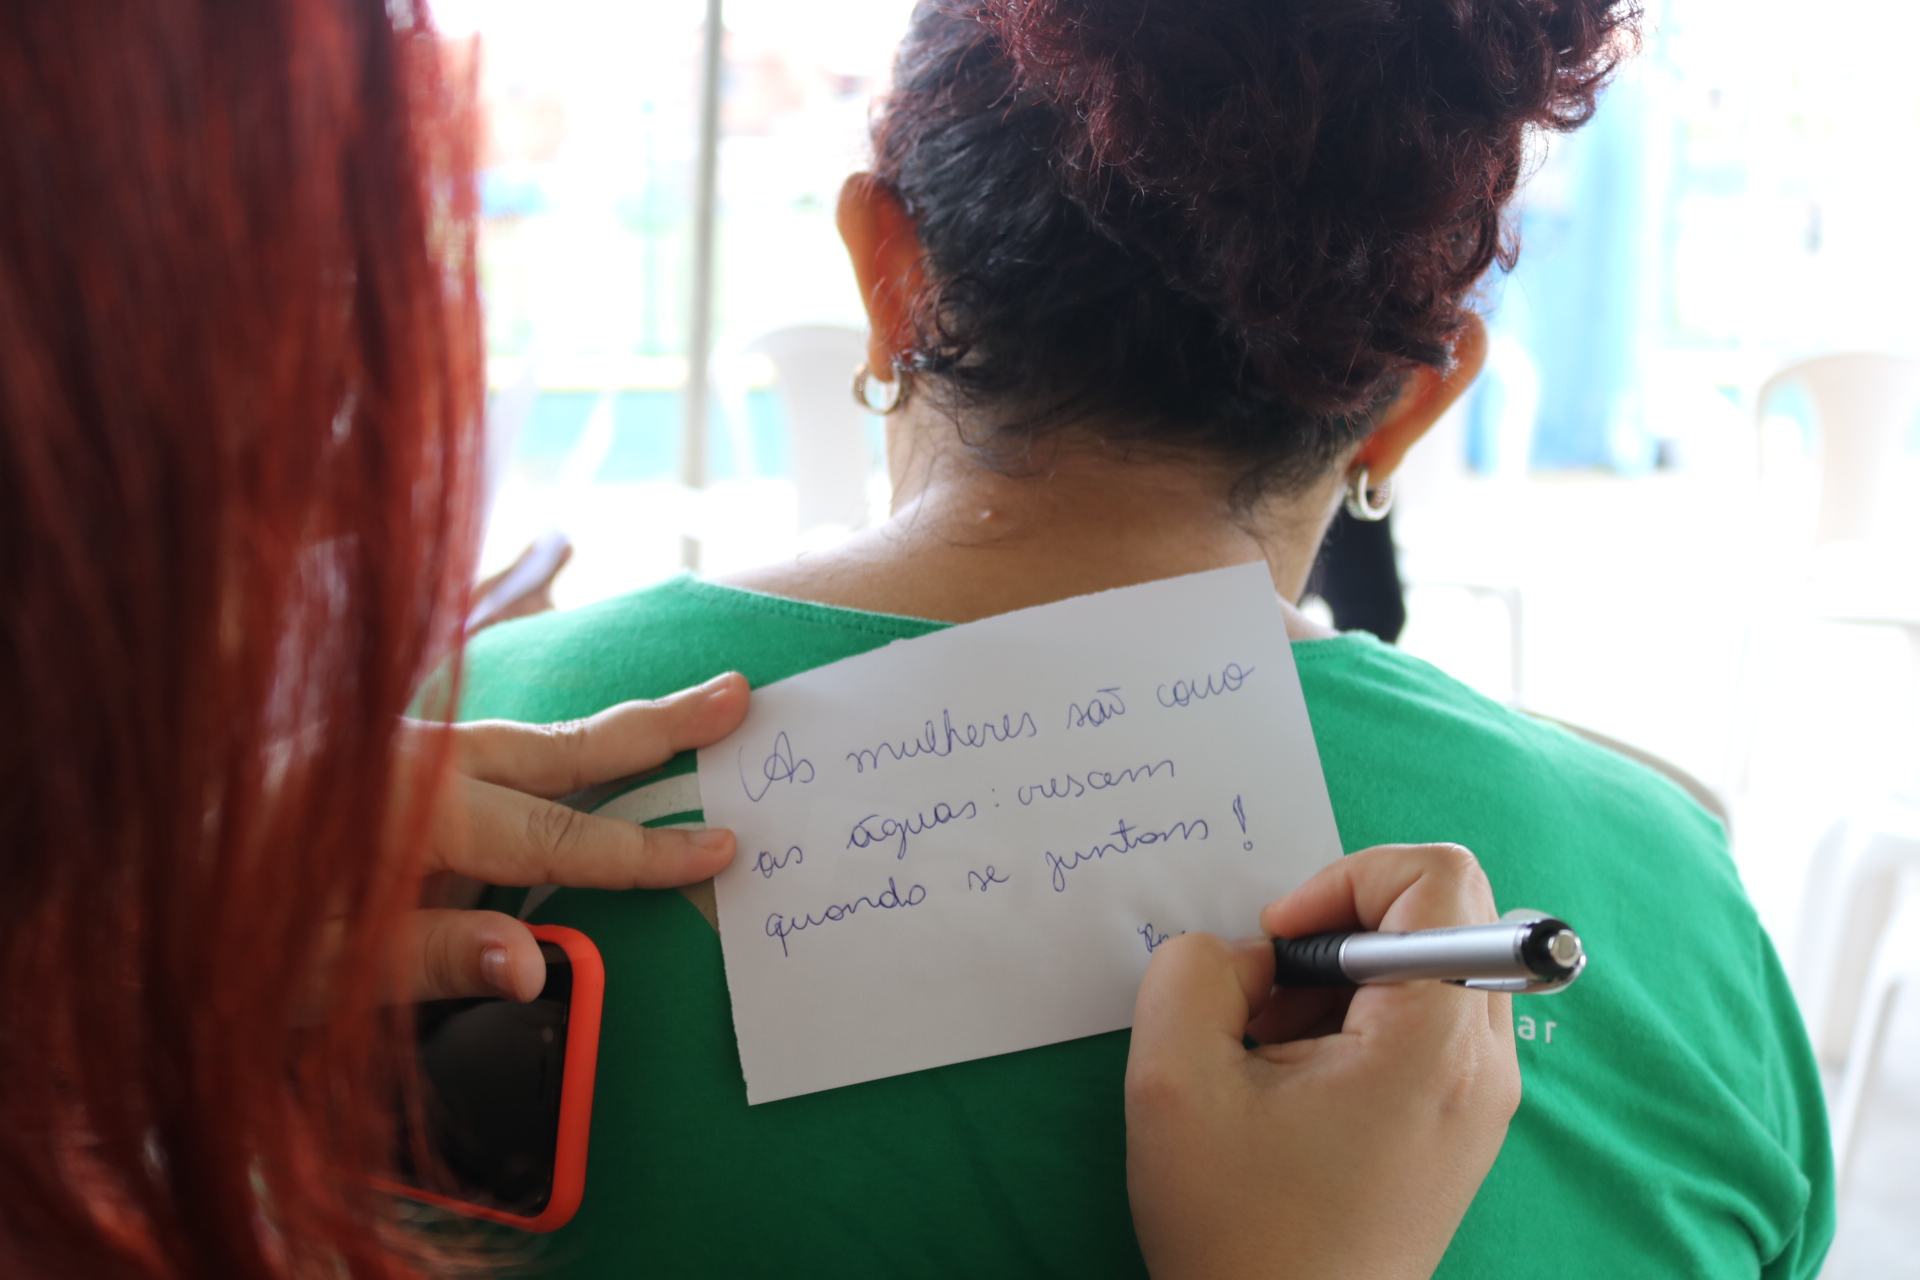 As mulheres são como
as águas: crescem
quando se juntam!
ar